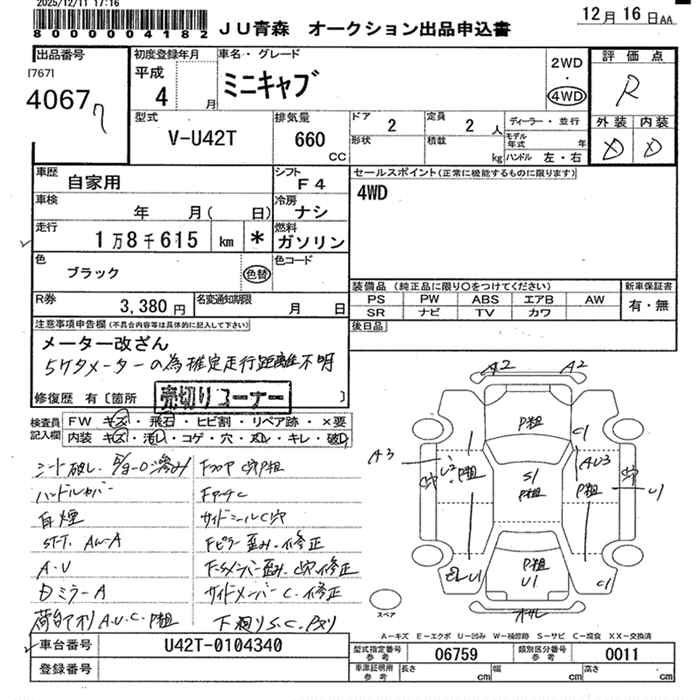 2025/12/11 17:16
8000004182
JU青森 オークション出品申込書
12月16日AA
出品番号
[767]
4067
初度登録年月
平成
4 年 月
車名・グレード
ミニキャブ
2WD
・
4WD
評価点
R
外装 内装
D D
型式
V-U42T
排気量
660
CC
ドア
2
形状
定員
2 人
積載
kg
ディーラー・並行
モデル年式 年
ハンドル 左・右
車歴
自家用
シフト
F4
セールスポイント(正常に機能するものに限ります)
4WD
車検
年 月( 日)
冷房
ナシ
走行
1万8千615 km *
燃料
ガソリン
色
ブラック
色替
色コード
R券
3,380円
名変通知期限
月 日
装備品 (純正品に限り○をつけてください)
新車保証書
PS PW ABS エアB AW
SR ナビ TV カワ
有・無
後日品
注意事項申告欄(不具合内容等は具体的に記入して下さい)
メーター改ざん
5ケタメーターの為推定走行距離不明
修復歴 有〔箇所 〕
売切りコーナー
検査員
記入欄
FW キズ・飛石・ヒビ割・リペア跡・×要
内装 キズ・汚レ・コゲ・穴・ヌレ・キレ・破レ
シート破レ
ハンドルカバー
白煙
A・U
Dミラー A
荷台アオリ A.U.C.P粗
サイドシールC穴
Fピラー歪み・修正
サイドメンバー C.修正
下廻りS.C.
A2 A2
P粗
C1
A3
U2
P粗
S1
P粗
AU3
P粗
U1
U1
P粗
U1
C1
スペア
A-キズ E-エクボ U-凹み W-補修跡 S-サビ C-腐食 XX-交換済
車台番号
U42T-0104340
登録番号
型式指定番号
参考
06759
類別区分番号
参考
0011
車庫証明用
参考
長さ cm
幅 cm
高さ cm